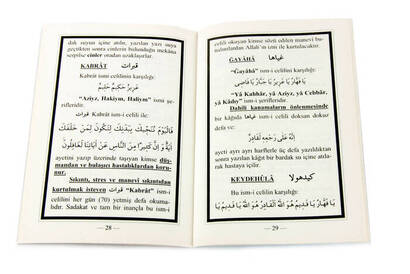 dak suyun içine atılır, yazılan yazı suya
geçtikten sonra cinlerin bulunduğu mekâna
serpilse cinler oradan uzaklaşırlar.
KABRÂT قبرات
Kabrât ismi celilinin karşılığı:
عَزِيزٌ حَكِيمٌ حَلِيمٌ
"Aziyz, Hakiym, Haliym" ismi şe-
rifleridir.
Kabrât ism-i celili ile:
فَالْيَوْمَ نُنَجِّيكَ بِبَدَنِكَ لِتَكُونَ لِمَنْ خَلْفَكَ
آيَةً وَإِنَّ كَثِيرًا مِنَ النَّاسِ عَنْ آيَاتِنَا لَغَافِلُونَ
ayetini yazıp üzerinde taşıyan kimse düş-
mandan ve bulaşıcı hastalıklardan koru-
nur.
Sıkıntı, stres ve manevi sıkıntıdan
kurtulmak isteyen قبرات "Kabrât" ism-i
celilini her gün (70) yetmiş defa okuma-
lıdır. Sadakat ve tam bir inançla bu ism-i
— 28 —
celili okuyan kimse sözü edilen manevi bu-
nalımlardan Allah'ın izni ile kurtulacaktır.
GAYÂHÂ غياها
"Gayâhâ" ism-i celilini karşılığı:
"Yâ Kahhâr, yâ Aziyz, yâ Cebbâr,
yâ Kâdıy" ism-i şerifleridir.
Dahilî kanamaların önlenmesinde
bir kâğıda غياها ism-i celili doksan dokuz
defa ve:
إِنَّهُ عَلَى رَجْعِهِ لَقَادِرٌ
ayeti ayrı ayrı harflerle üç defa yazıldıktan
sonra yazılan kâğıt bir bardak su içine atıla-
rak hastaya içilir.
KEYDEHÛLÂ كيدهولا
Bu ism-i celilin karşılığı:
— 29 —